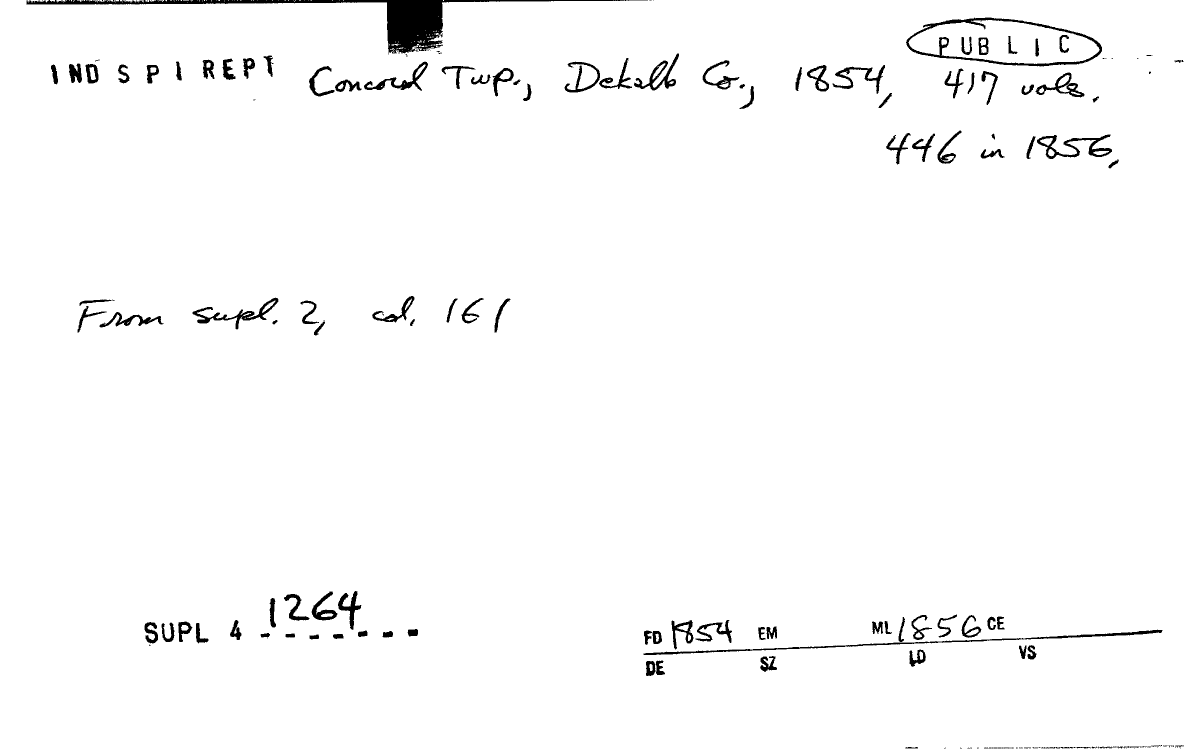 PUBLIC
IND SPI REPT Concord Twp., Dekalb Co., 1854, 417 vols.
446 in 1856,
From supl. 2, col. 161
SUPL 4 1264
FD 1854 EM ML 1856 CE
DE SZ LD VS